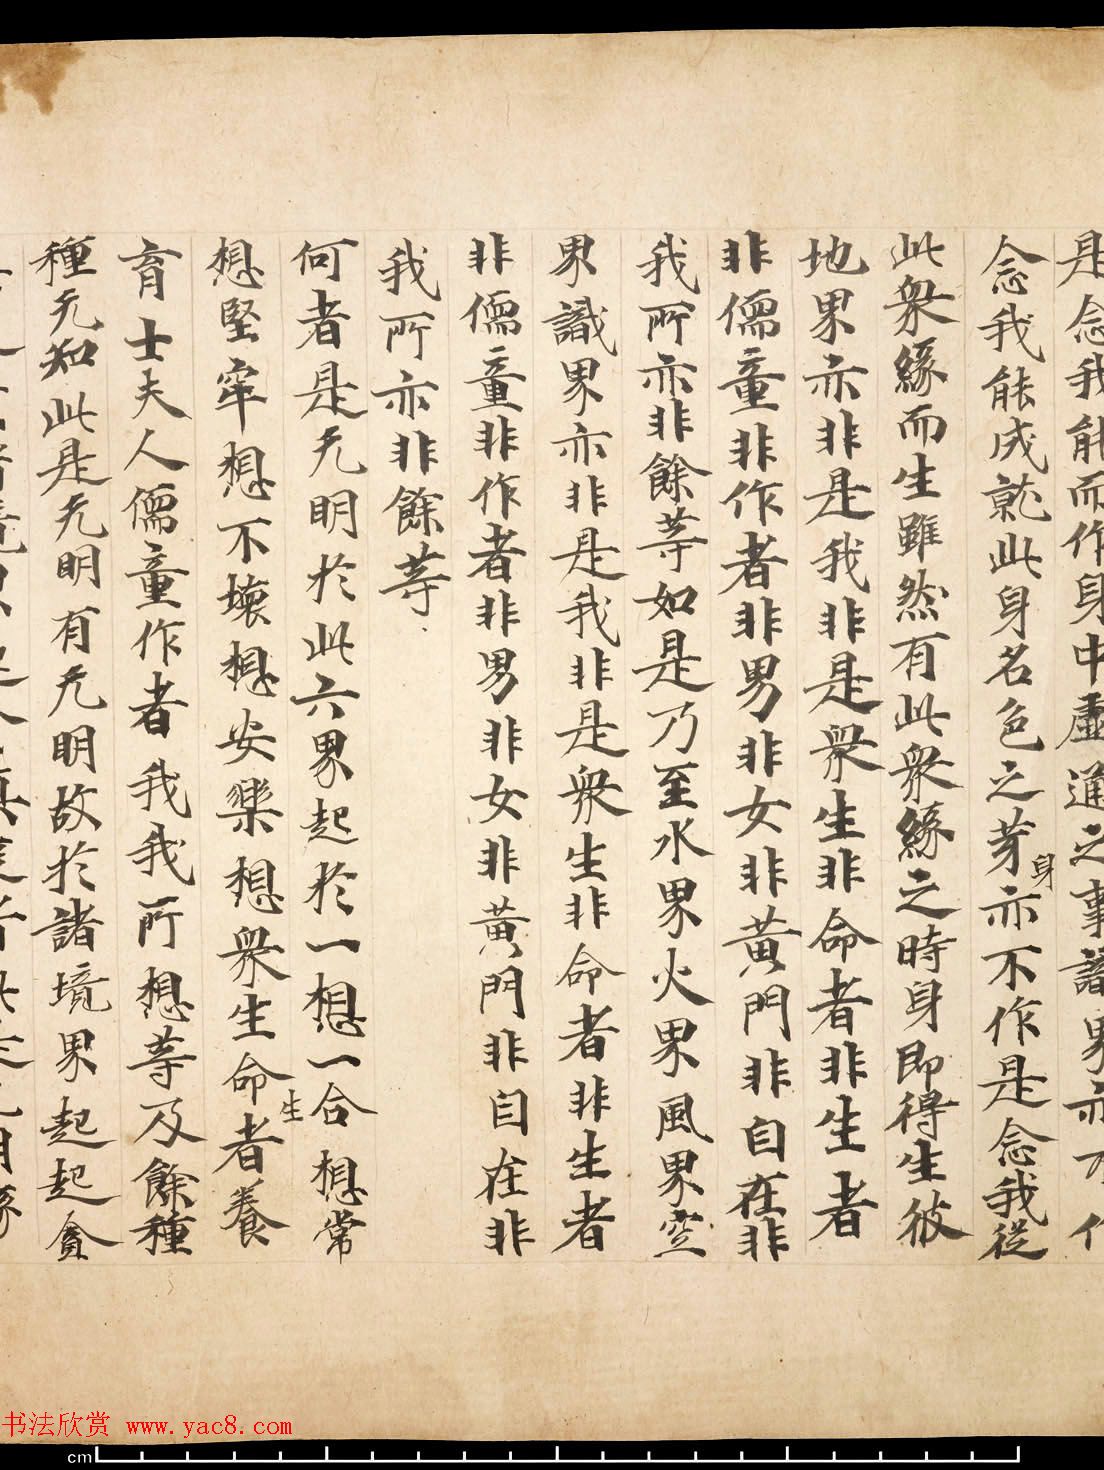 是念我能而作身中虛通之事諸界亦不作
念我能成就此身名色之芽身亦不作是念我從
此衆緣而生雖然有此衆緣之時身即得生彼
地界亦非是我非是衆生非命者非生者
非儒童非作者非男非女非黃門非自在非
我所亦非餘等如是乃至水界火界風界空
界識界亦非是我非是衆生非命者非生者
非儒童非作者非男非女非黃門非自在非
我所亦非餘等
何者是无明於此六界起於一想一合想常
想堅牢想不壞想安樂想衆生命生者養
育士夫人儒童作者我我所想等及餘種
種无知此是无明有无明故於諸境界起起貪
书法欣赏 www.yac8.com
cm